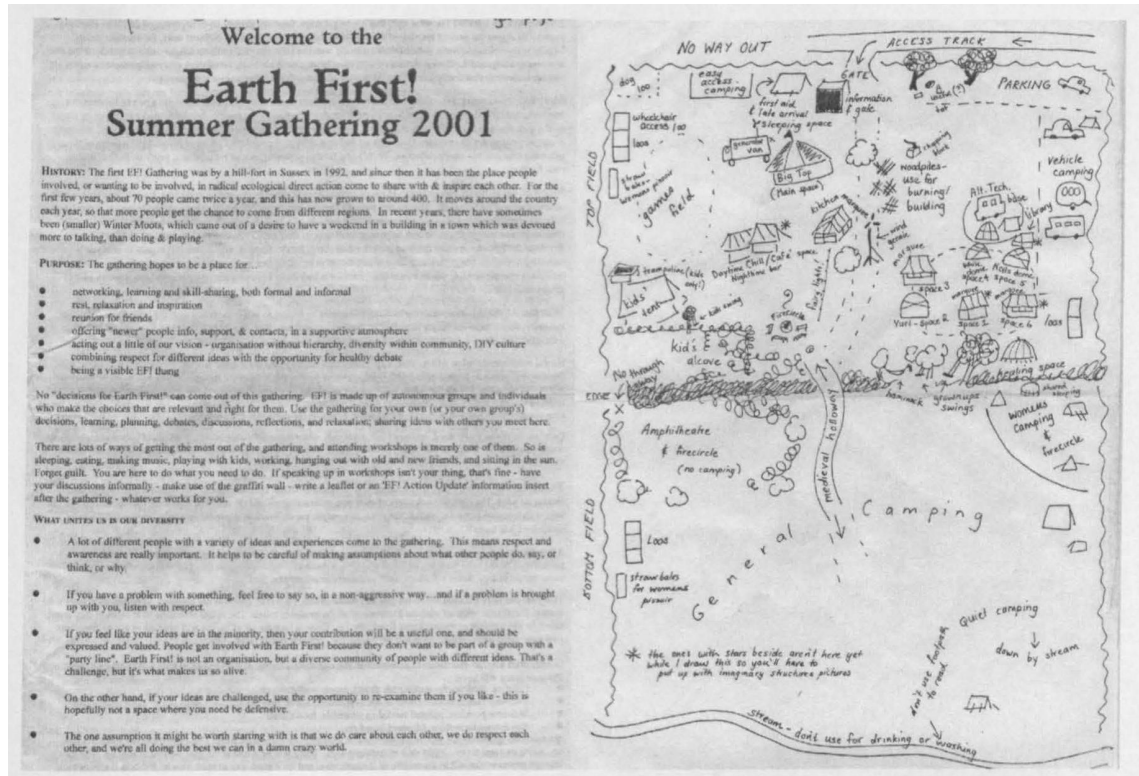 Welcome to the
Earth First!
Summer Gathering 2001
HISTORY: The first EF! Gathering was by a hill-fort in Sussex in 1992, and since then it has been the place people
involved, or wanting to be involved, in radical ecological direct action come to share with & inspire each other. For the
first few years, about 70 people came twice a year, and this has now grown to around 400. It moves around the country
each year, so that more people get the chance to come from different regions. In recent years, there have sometimes
been (smaller) Winter Moots, which came out of a desire to have a weekend in a building in a town which was devoted
more to talking, than doing & playing.
PURPOSE: The gathering hopes to be a place for...
● networking, learning and skill-sharing, both formal and informal
● rest, relaxation and inspiration
● reunion for friends
● offering "newer" people info, support, & contacts, in a supportive atmosphere
● acting out a little of our vision - organisation without hierarchy, diversity within community, DIY culture
● combining respect for different ideas with the opportunity for healthy debate
● being a visible EF! thang
No "decisions for Earth First!" can come out of this gathering. EF! is made up of autonomous groups and individuals
who make the choices that are relevant and right for them. Use the gathering for your own (or your own group's)
decisions, learning, planning, debates, discussions, reflections, and relaxation; sharing ideas with others you meet here.
There are lots of ways of getting the most out of the gathering, and attending workshops is merely one of them. So is
sleeping, eating, making music, playing with kids, working, hanging out with old and new friends, and sitting in the sun.
Forget guilt. You are here to do what you need to do. If speaking up in workshops isn't your thing, that's fine - have
your discussions informally - make use of the graffiti wall - write a leaflet or an 'EF! Action Update' information insert
after the gathering - whatever works for you.
WHAT UNITES US IS OUR DIVERSITY
● A lot of different people with a variety of ideas and experiences come to the gathering. This means respect and
awareness are really important. It helps to be careful of making assumptions about what other people do, say, or
think, or why.
● If you have a problem with something, feel free to say so, in a non-aggressive way...and if a problem is brought
up with you, listen with respect.
● If you feel like your ideas are in the minority, then your contribution will be a useful one, and should be
expressed and valued. People get involved with Earth First! because they don't want to be part of a group with a
"party line". Earth First! is not an organisation, but a diverse community of people with different ideas. That's a
challenge, but it's what makes us so alive.
● On the other hand, if your ideas are challenged, use the opportunity to re-examine them if you like - this is
hopefully not a space where you need be defensive.
● The one assumption it might be worth starting with is that we do care about each other, we do respect each
other, and we're all doing the best we can in a damn crazy world.
NO WAY OUT
ACCESS TRACK
GATE
PARKING
dog
loo
easy
access
camping
first aid
& late arrival
sleeping space
information
& gate
wheelchair
access loo
loos
straw
bales -
womens pissoir
TOP FIELD
games
field
generator
van
Big Top
(Main space)
chopping
block
woodpiles -
use for
burning/
building
vehicle
camping
Alt. Tech.
base
library
kitchen marquee
wind
genie
marquee
space 3
Daytime Chill/Café space
Nighttime bar
trampoline (kids
only!)
kid's
tent
fairy lights
space 4
space 5
Yurt - space 2
marquee
space 1
marquee
space 6
loos
Firecircle
kid's
alcove
No through
holloway
EDGE
hammock
grownups
swings
healing space
shared
womens
camping
&
firecircle
medieval holloway
Amphitheatre
& firecircle
(no camping)
General Camping
BOTTOM FIELD
Loos
straw bales
for womens
pissoir
Quiet camping
down by stream
don't use footpath
to road
* the ones with stars beside aren't here yet
while I draw this so you'll have to
put up with imaginary structure pictures
stream - don't use for drinking or washing